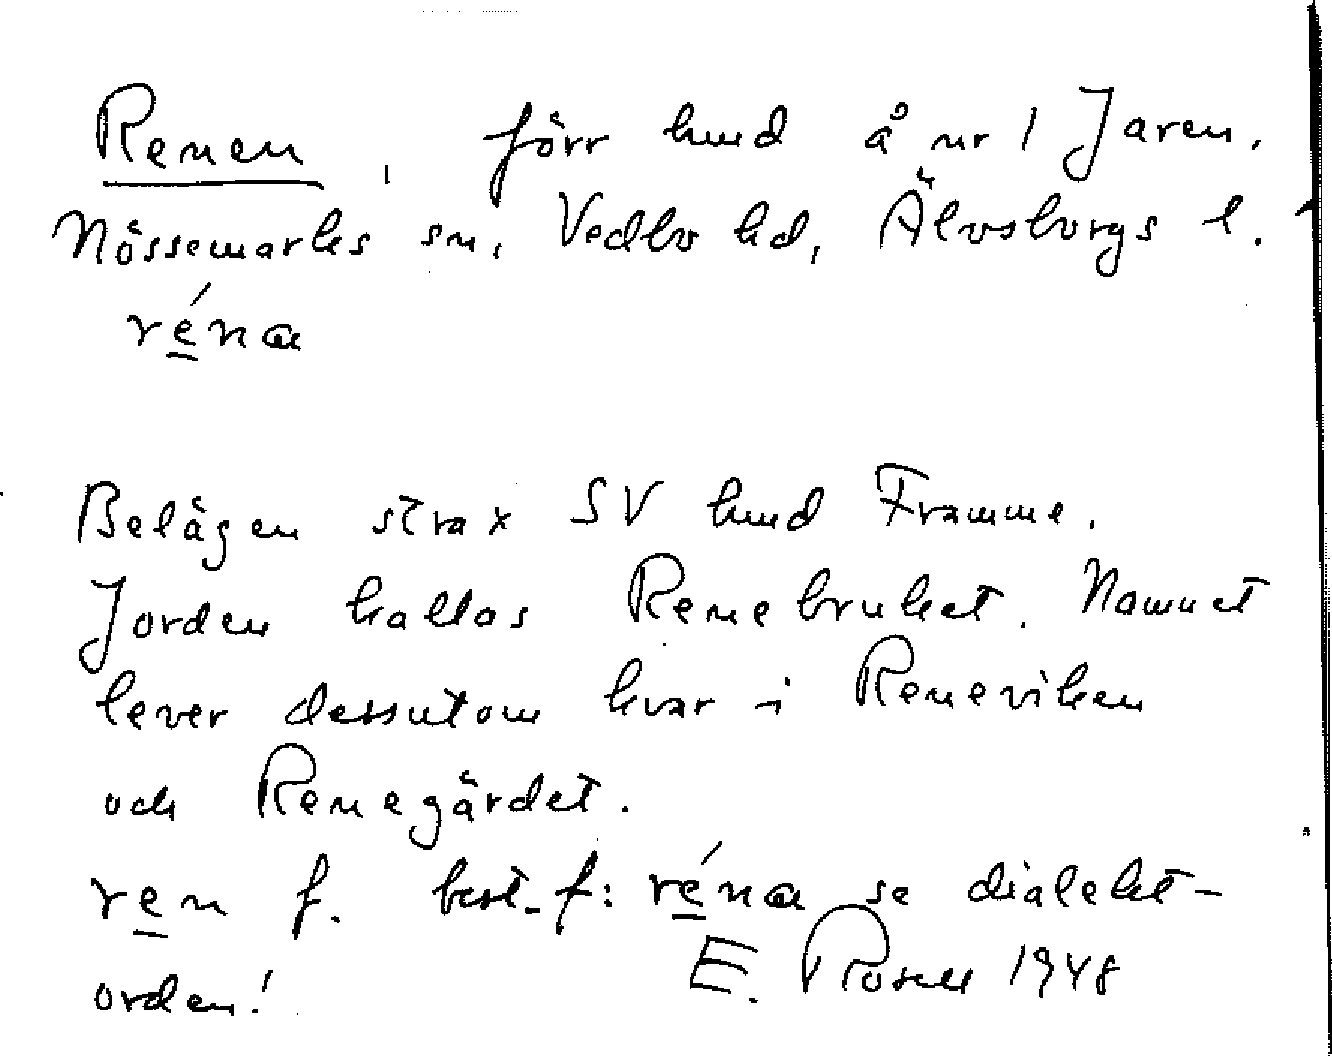 Renen, förr hmd å nr 1 Jaren.
Nössemarks sn, Vedbo hd, Älvsborgs l.
réna
Belägen strax SV hmd Framme.
Jorden kallas Renebruket. Namnet
lever dessutom kvar i Reneviken
och Renegärdet.
ren f. best. f: réna se dialekt-
orden!
E. Rosell 1948